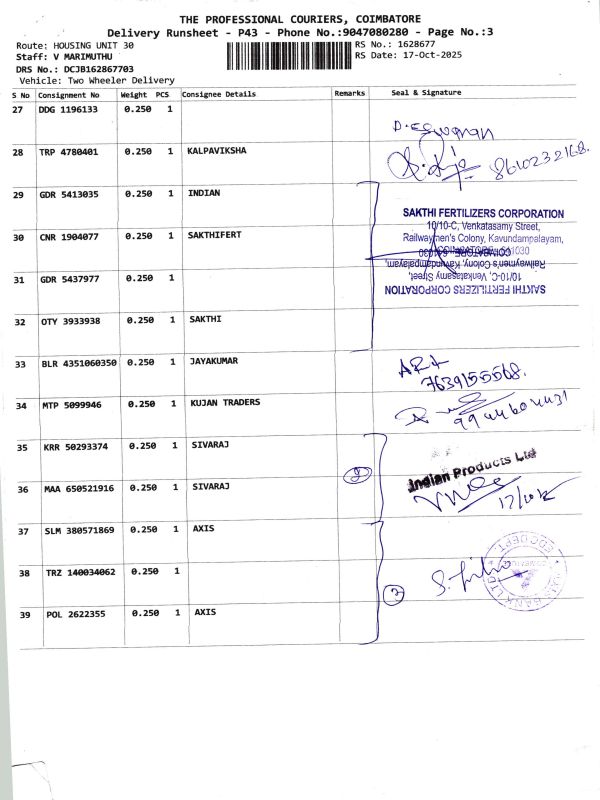 THE PROFESSIONAL COURIERS, COIMBATORE
Delivery Runsheet - P43 - Phone No.:9047080280 - Page No.:3
Route: HOUSING UNIT 30
RS No.: 1628677
Staff: V MARIMUTHU
RS Date: 17-Oct-2025
DRS No.: DCJB162867703
Vehicle: Two Wheeler Delivery
S No Consignment No Weight PCS Consignee Details Remarks Seal & Signature
27 DDG 1196133 0.250 1
28 TRP 4780401 0.250 1 KALPAVIKSHA
8610232168.
29 GDR 5413035 0.250 1 INDIAN
SAKTHI FERTILIZERS CORPORATION
10/10-C, Venkatasamy Street,
30 CNR 1904077 0.250 1 SAKTHIFERT
Railwaymen's Colony, Kavundampalayam,
COIMBATORE - 641030
Railwaymen's Colony, Kavundampalayam,
31 GDR 5437977 0.250 1
10/10-C, Venkatasamy Street,
SAKTHI FERTILIZERS CORPORATION
32 OTY 3933938 0.250 1 SAKTHI
33 BLR 4351060350 0.250 1 JAYAKUMAR
7639155568.
34 MTP 5099946 0.250 1 KUJAN TRADERS
9944604431
35 KRR 50293374 0.250 1 SIVARAJ
Indian Products Ltd
2
36 MAA 650521916 0.250 1 SIVARAJ
37 SLM 380571869 0.250 1 AXIS
38 TRZ 140034062 0.250 1
3
39 POL 2622355 0.250 1 AXIS